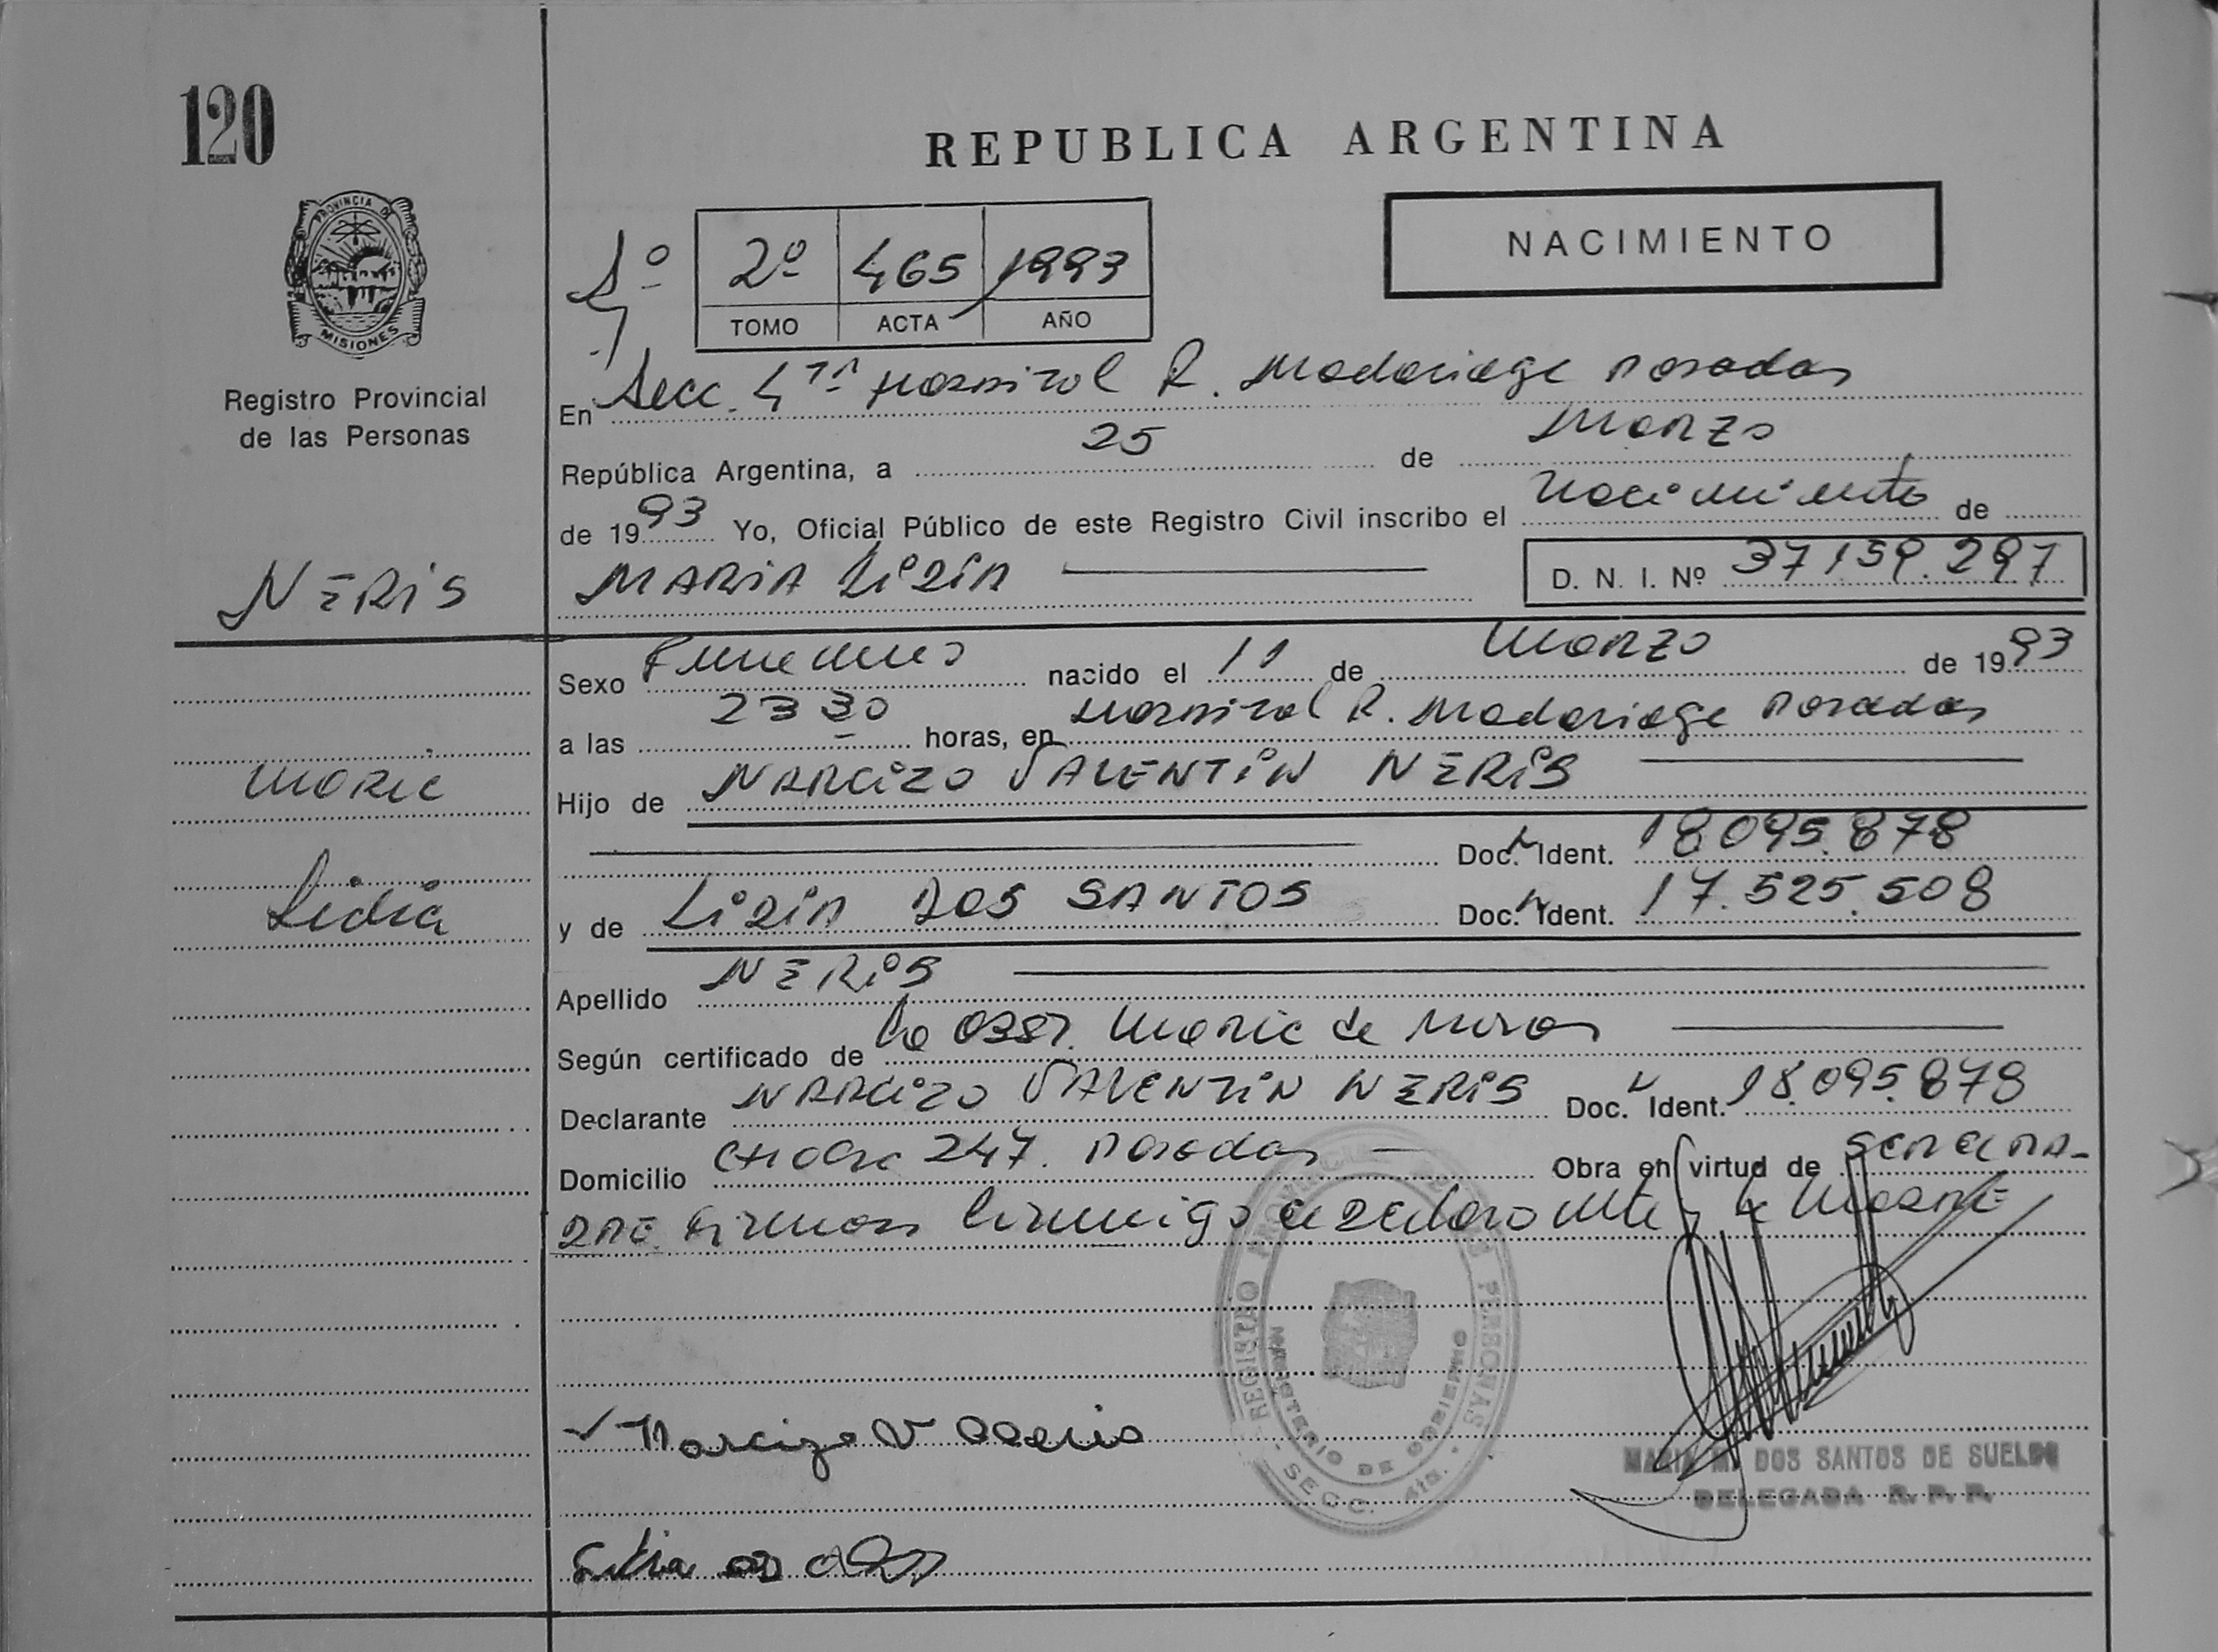 120
REPUBLICA ARGENTINA
PROVINCIA DE
MISIONES
Registro Provincial
de las Personas
NACIMIENTO
2º 465 1993
TOMO ACTA AÑO
En Secc. 4ta Hospital R. Madariaga Posadas
República Argentina, a 25 de Marzo
de 1993 Yo, Oficial Público de este Registro Civil inscribo el Nacimiento de
NERIS
MARIA LIDIA
D. N. I. Nº 37.159.297
Sexo Femenino nacido el 11 de Marzo de 1993
a las 23 30 horas, en Hospital R. Madariaga Posadas
Maria
Hijo de NARCIZO VALENTIN NERIS
Doc. Ident. 18.095.878
Lidia
y de LIDIA DOS SANTOS Doc. Ident. 17.525.508
Apellido NERIS
Según certificado de la Obst. Maria de
Declarante NARCIZO VALENTIN NERIS Doc. Ident. 18.095.878
Domicilio 247. Posadas Obra en virtud de
Firman conmigo el declarante y la Madre
REGISTRO PROVINCIAL DE LAS PERSONAS
MINISTERIO DE GOBIERNO
SECC. 4ta.
Narcizo V Neris
MARIA M. DOS SANTOS DE SUELDO
DELEGADA R. P. P.
Lidia